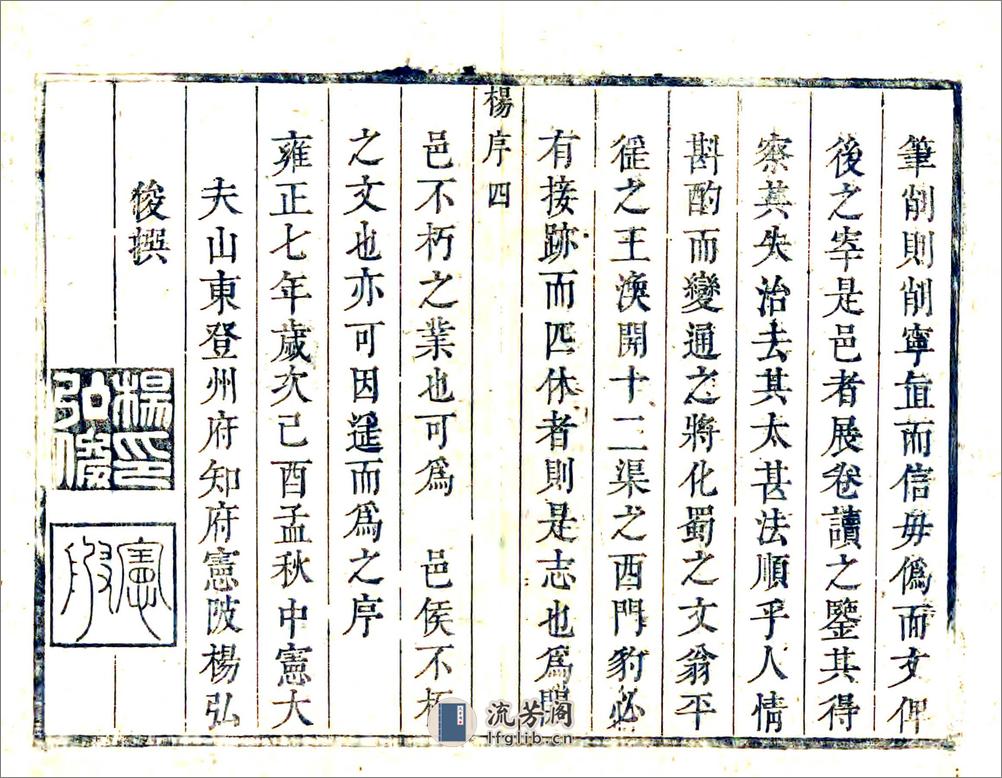 筆削則削寧直而信毋僞而文俾
後之宰是邑者展卷讀之鑒其得
察其失治去其太甚法順乎人情
斟酌而變通之將化蜀之文翁平
徭之王渙開十二渠之西門豹必
有接跡而匹休者則是志也爲
楊序 四
邑不朽之業也可爲 邑侯不朽
之文也亦可因而爲之序
雍正七年歲次己酉孟秋中憲大
夫山東登州府知府憲陂楊弘
俊撰
楊印弘俊
憲陂
流芳閣
lfglib.cn